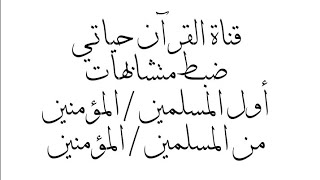 قناة القرآن حياتي
ضبط متشابهات
أول المسلمين / المؤمنين
من المسلمين / المؤمنين